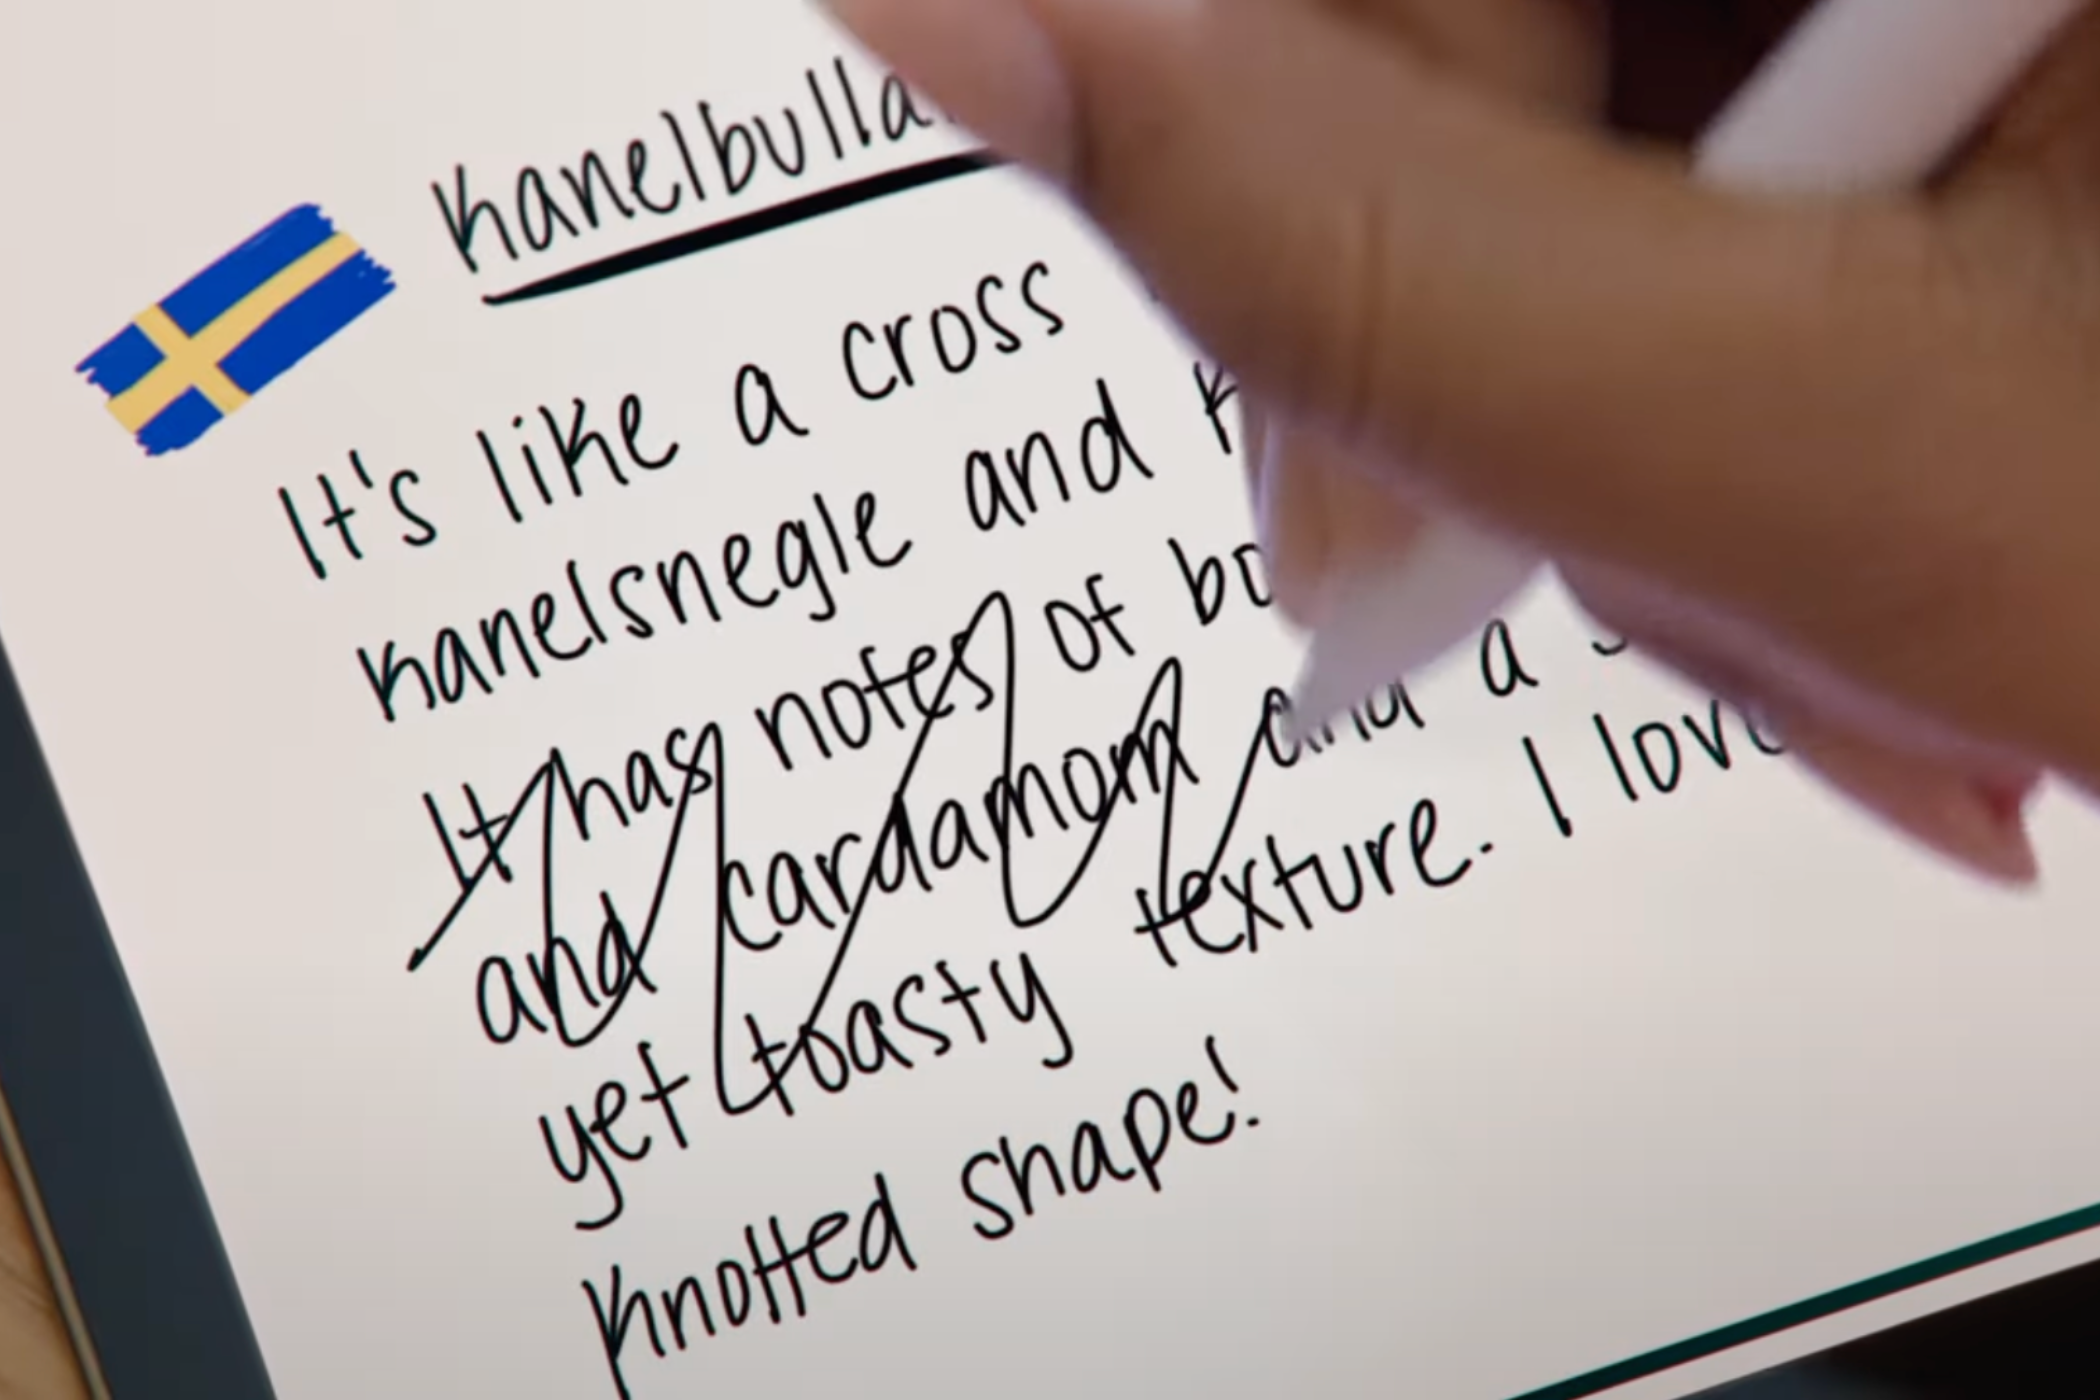 It's like a cross
kanelsnegle and
It has notes of
and cardamom and a
yet toasty texture. I love
knotted shape!